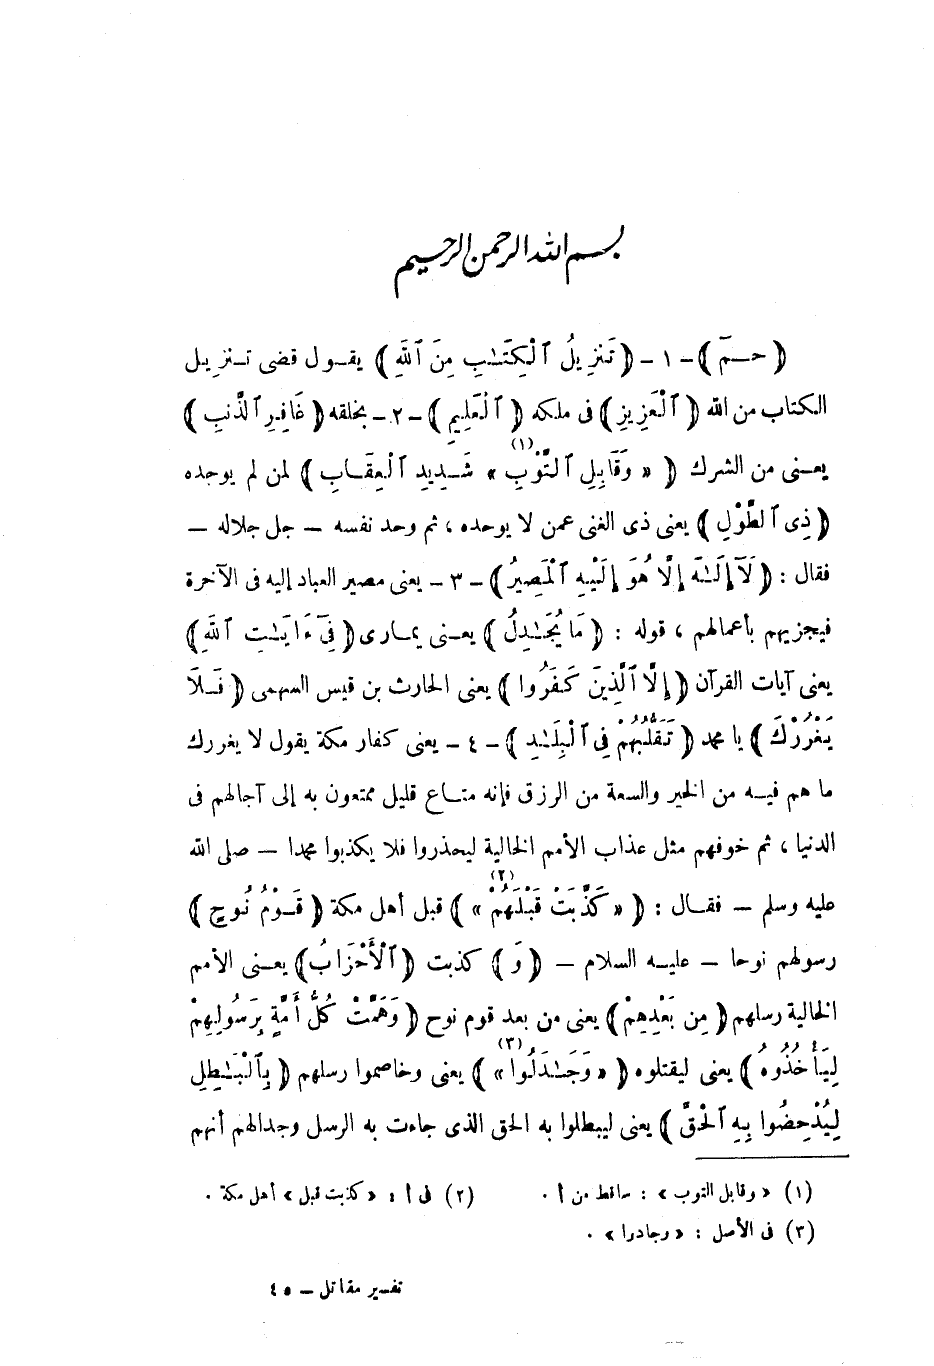 بسم الله الرحمن الرحيم
( حـمٓ ) - ١ - ( تَنزِيلُ ٱلْكِتَـٰبِ مِنَ ٱللَّهِ ) يقول قضى تنزيل
الكتاب من الله ( ٱلْعَزِيزِ ) فى ملكه ( ٱلْعَلِيمِ ) - ٢ - بخلقه ( غَافِرِ ٱلذَّنبِ )
يعنى من الشرك ( « وَقَابِلِ ٱلتَّوْبِ » (١) شَدِيدِ ٱلْعِقَابِ ) لمن لم يوحده
( ذِى ٱلطَّوْلِ ) يعنى ذى الغنى عمن لا يوحده ، ثم وحد نفسه — جل جلاله —
فقال : ( لَآ إِلَـٰهَ إِلَّا هُوَ إِلَيْهِ ٱلْمَصِيرُ ) - ٣ - يعنى مصير العباد إليه فى الآخرة
فيجزيهم بأعمالهم ، قوله : ( مَا يُجَـٰدِلُ ) يعنى يمارى ( فِىٓ ءَايَـٰتِ ٱللَّهِ )
يعنى آيات القرآن ( إِلَّا ٱلَّذِينَ كَفَرُوا ) يعنى الحارث بن قيس السهمى ( فَلَا
يَغْرُرْكَ ) يا محمد ( تَقَلُّبُهُمْ فِى ٱلْبِلَـٰدِ ) - ٤ - يعنى كفار مكة يقول لا يغررك
ما هم فيه من الخير والسعة من الرزق فإنه متاع قليل ممتعون به إلى آجالهم فى
الدنيا ، ثم خوفهم مثل عذاب الأمم الخالية ليحذروا فلا يكذبوا محمدا — صلى الله
عليه وسلم — فقال : ( « كَذَّبَتْ قَبْلَهُمْ » (٢) ) قبل أهل مكة ( قَوْمُ نُوحٍ )
رسولهم نوحا — عليه السلام — ( وَ ) كذبت ( ٱلْأَحْزَابُ ) يعنى الأمم
الخالية رسلهم ( مِن بَعْدِهِمْ ) يعنى من بعد قوم نوح ( وَهَمَّتْ كُلُّ أُمَّةٍ بِرَسُولِهِمْ
لِيَأْخُذُوهُ ) يعنى ليقتلوه ( « وَجَـٰدَلُوا » (٣) ) يعنى وخاصموا رسلهم ( بِٱلْبَـٰطِلِ
لِيُدْحِضُوا بِهِ ٱلْحَقَّ ) يعنى ليبطلوا به الحق الذى جاءت به الرسل وجدالهم أنهم
(١) « وقابل التوب » : ساقط من أ . (٢) فى أ : « كذبت قبل » أهل مكة .
(٣) فى الأصل : « وجادرا » .
تفسير مقاتل — ٤٥